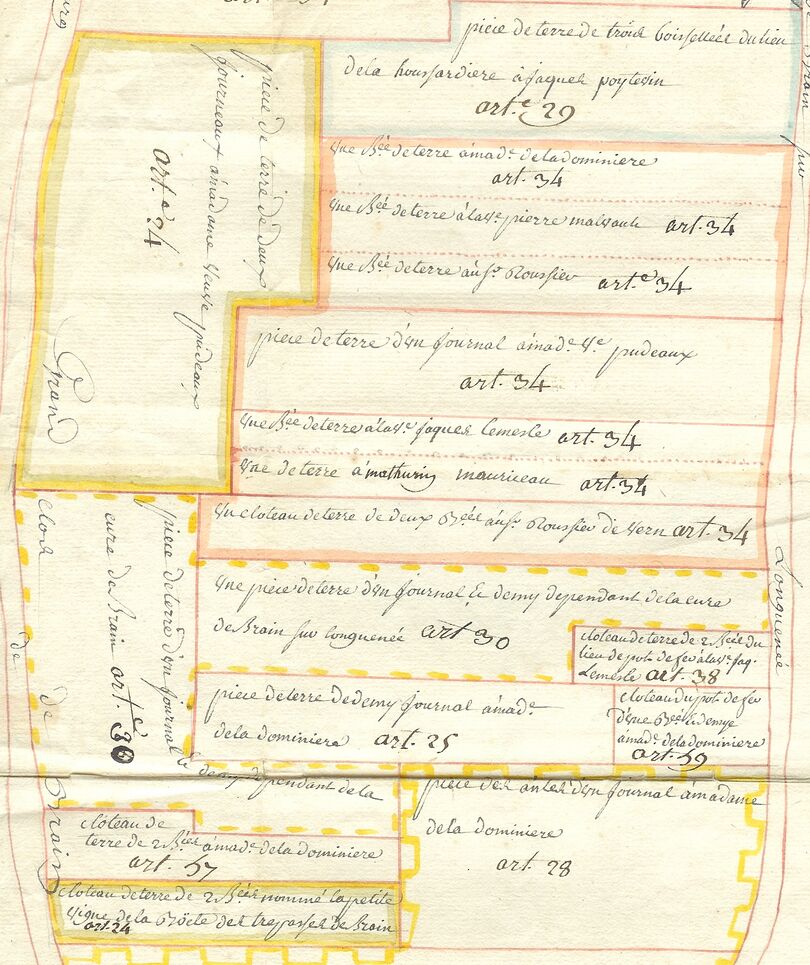 piece de terre de trois boissellées du lieu
de la houssardiere a jaques poytevin
art.e 29
piece de terre de deux
journeaux a madame veuve pideaux
art.e 24
une B.ée de terre a mad.e de la dominiere
art. 34
une B.ée de terre a la v.e pierre
art. 34
une B.ée de terre au s.r Roussier art.e 34
piece de terre d'un journal a mad.e v.e pideaux
art. 34
une B.ée de terre a la v.e jaques Lemesle art. 34
une de terre a mathurin mauriceau art. 34
un cloteau de terre de deux B.ées au s.r Roussier de vern art. 34
Grand
clos de
de Brain
Longuenée
Brain sur
piece de terre d'un journal
& demy dependant de la
cure de Brain art.e 30
une piece de terre d'un journal & demy dependant de la cure
de Brain sur longuenée art 30
cloteau de terre de 2 B.ées du
lieu de pot de fer a la v.e jaq.
Lemesle art. 38
piece de terre de demy journal a mad.e
de la dominiere art. 25
cloteau du pot de fer
d'une B.ée & demye
a mad.e de la dominiere
art. 59
cloteau de
terre de 2 B.ées a mad.e de la dominiere
art. 57
piece des d'un journal a madame
de la dominiere
art. 28
cloteau de terre de 2 B.ées nommé la petite
vigne de la Boete des trepassés de Brain
art. 24